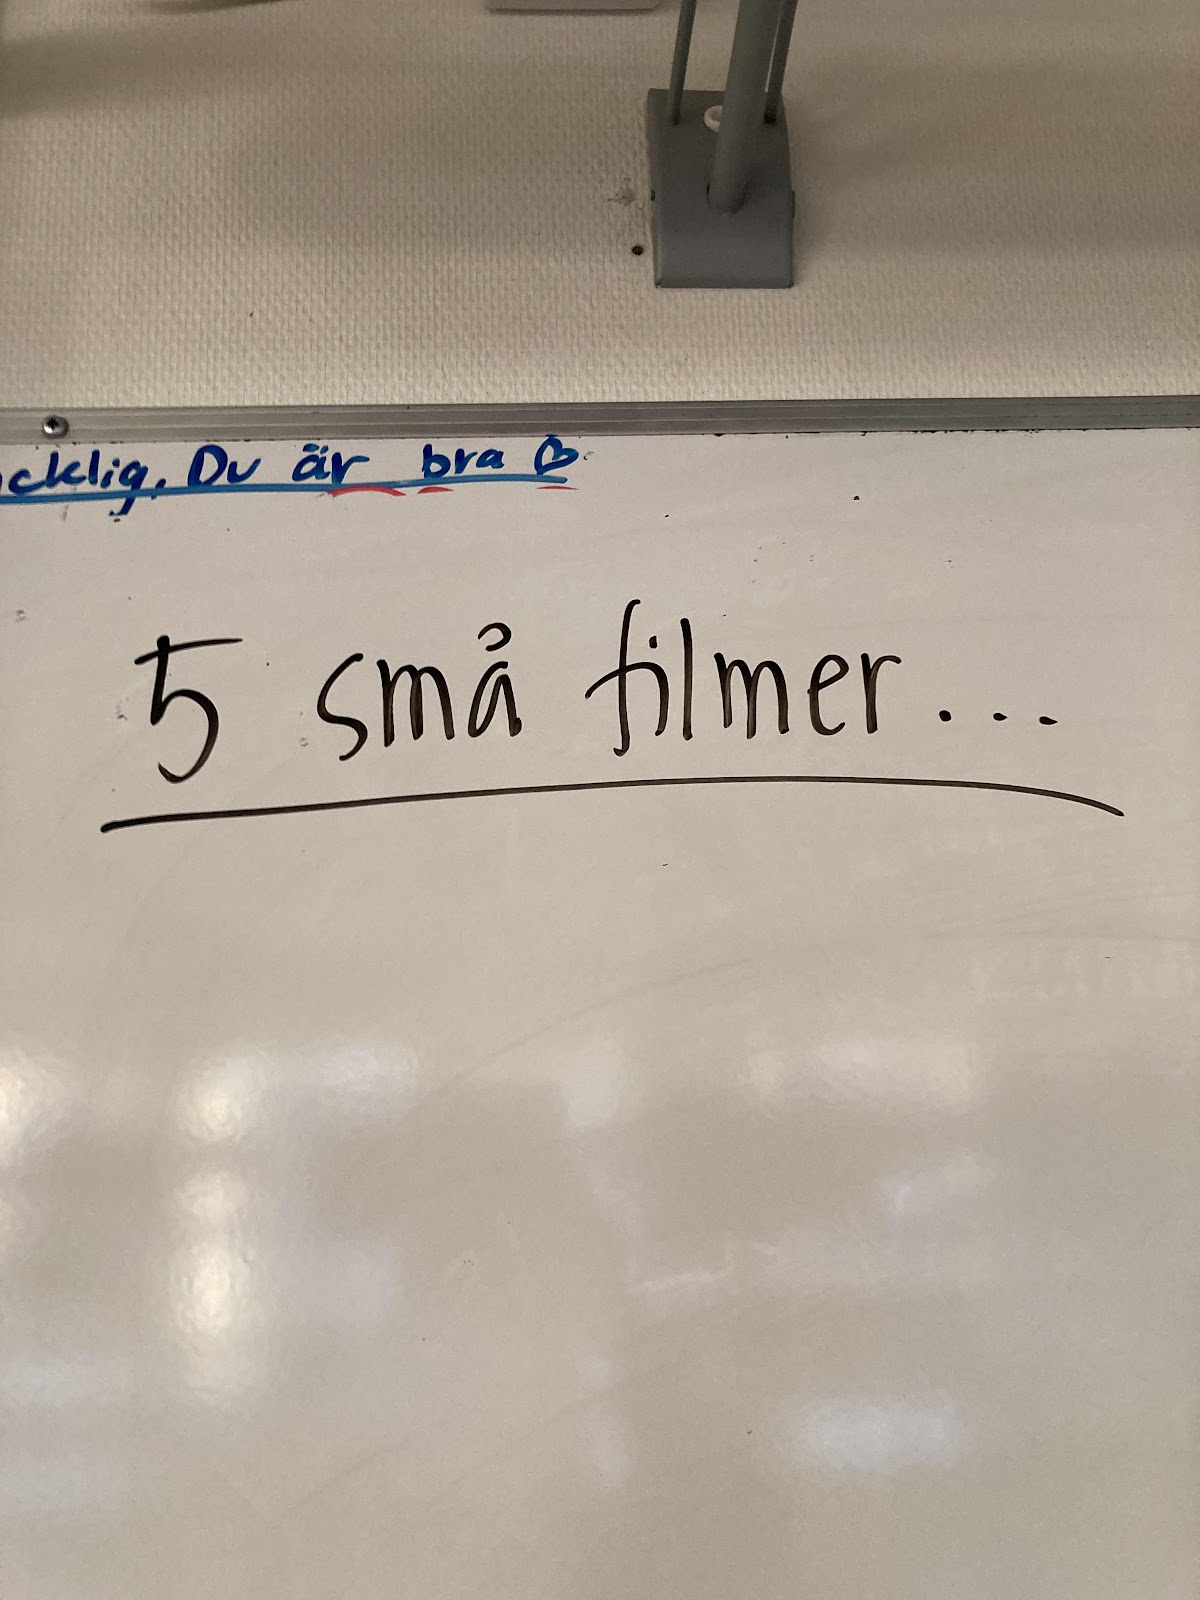 cklig. Du är bra ♡
5 små filmer...